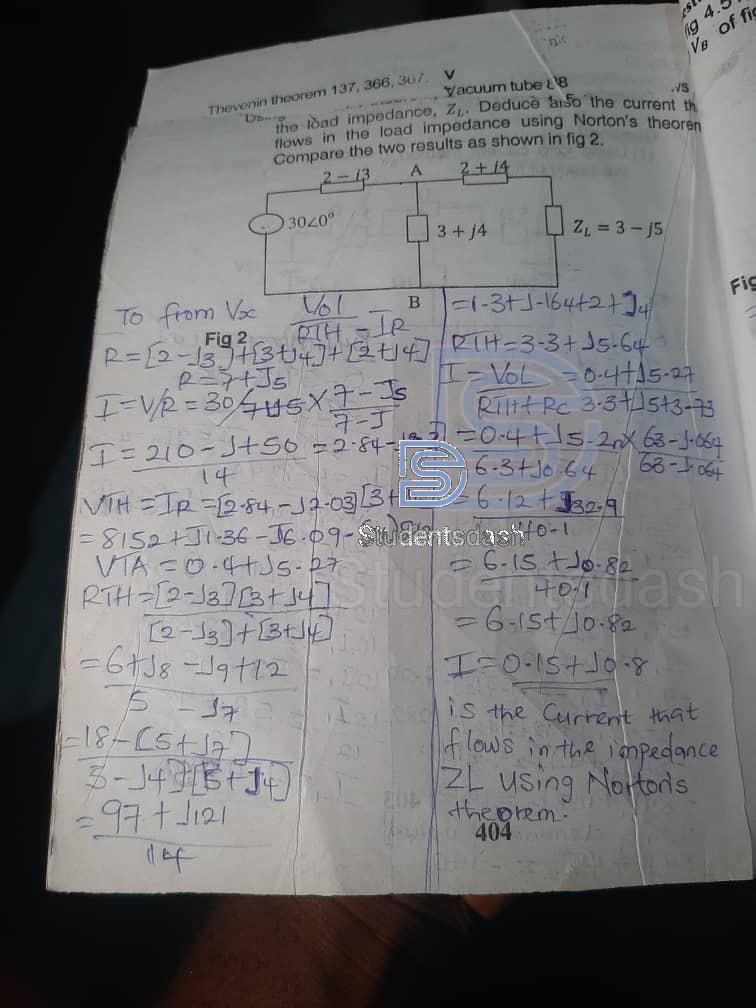 ig 4.5
V_B of fi
Thevenin theorem 137, 366, 367.
V
Vacuum tube
the load impedance, Z_L. Deduce also the current th
flows in the load impedance using Norton's theoren
Compare the two results as shown in fig 2.
2 – j3
A
2 + j4
30∠0°
3 + j4
Z_L = 3 – j5
B
Fig 2
Fig
To from Vx
Vol
RTH - IR
R = [2-J3]+[3+J4]+[2+J4]
R = 7+J5
I = V/R = 30/7+J5 × 7-J5
7-J
I = 210-J+50 = 2.84-
14
VTH = IR = [2.84-J2.03][3+
= 8152+J1.36-J6.09-
VTA = 0.4+J5.27
RTH = [2-J3][3+J4]
[2-J3]+[3+J4]
= 6+J8-J9+12
5 -J7
= 18-[5+J7]
= 97+J121
14
= 1.3+J-164+2+J4
RTH = 3.3+J5.64
I = VOL = 0.4+J5.27
RTH+RC 3.3+J5+3-73
= 0.4+J5-2n× 63-J.064
6.3+J0.64 68-J.064
= 6.12+J32.9
40-1
= 6.15+J0.82
40.1
= 6.15+J0.82
I = 0.15+J0.8
is the current that
flows in the impedance
ZL using Norton's
theorem.
404
Studentsdash
Studentsdash